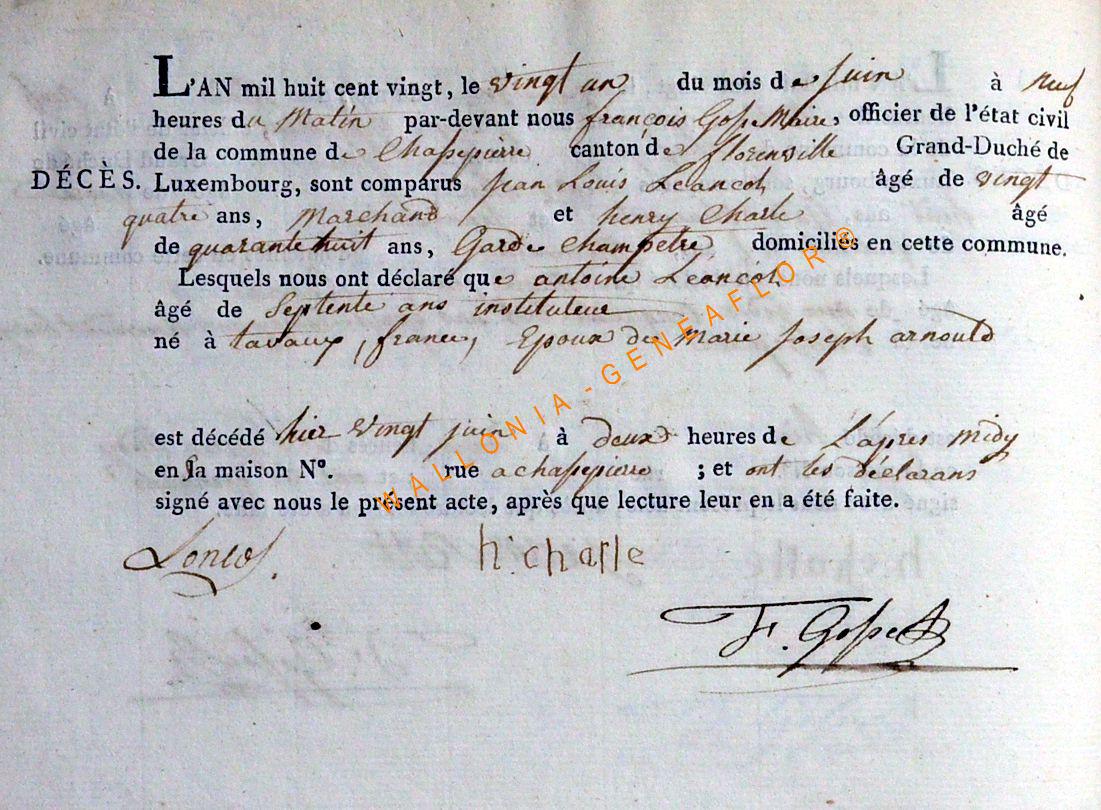 L'AN mil huit cent vingt, le vingt un du mois de juin à neuf
heures du Matin par-devant nous françois Gosse Maire, officier de l'état civil
de la commune de Chassepierre canton de florenville Grand-Duché de
DÉCÈS. Luxembourg, sont comparus jean Louis Leancot âgé de vingt
quatre ans, Marchand et henry Charle âgé
de quarante huit ans, Garde Champetre, domiciliés en cette commune.
Lesquels nous ont déclaré que antoine Leancot
âgé de Septente ans instituteur
né à tavaux, france, Epoux de Marie joseph arnould
est décédé hier vingt juin à deux heures de L'apres Midy
en la maison N°. rue a chassepierre ; et ont les déclarans
signé avec nous le présent acte, après que lecture leur en a été faite.
h. charle
F. Gosse
WALLONIA - GENEAFLOR ®